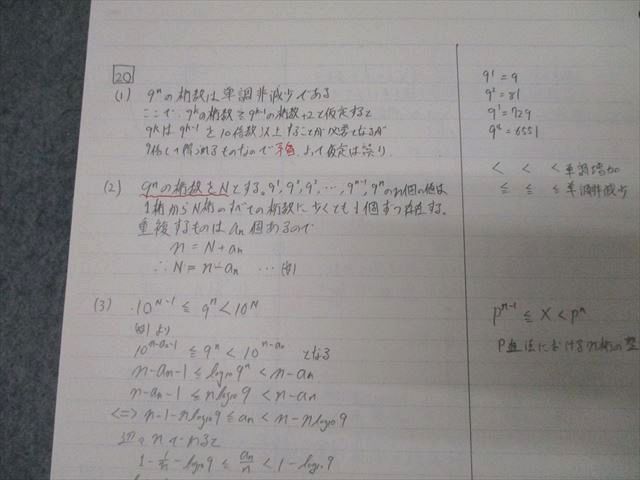 20
(1) 9ⁿの桁数は単調非減少である
ここで 9ᵏの桁数を9ᵏ⁻¹の桁数+2と仮定すると
9ᵏは 9ᵏ⁻¹を10倍以上することが必要となるが
9倍して得られるものなので矛盾 よって仮定は誤り
(2) 9ⁿの桁数をNとする。9¹, 9², 9³, …, 9ⁿ⁻¹, 9ⁿのn個の値は
1桁からN桁のすべての桁数に少くても1個ずつ存在する。
重複するものは aₙ個あるので
n = N + aₙ
∴ N = n - aₙ …
(3) 10ᴺ⁻¹ ≦ 9ⁿ < 10ᴺ
より
10ⁿ⁻ᵃⁿ⁻¹ ≦ 9ⁿ < 10ⁿ⁻ᵃⁿ となる
n - aₙ - 1 ≦ log₁₀9ⁿ < n - aₙ
n - aₙ - 1 ≦ n log₁₀9 < n - aₙ
<=> n - 1 - n log₁₀9 ≦ aₙ < n - n log₁₀9
1 - 1/n - log₁₀9 ≦ aₙ/n < 1 - log₁₀9
9¹ = 9
9² = 81
9³ = 729
9⁴ = 6551
< < < 単調増加
≦ ≦ ≦ 単調非減少
pⁿ⁻¹ ≦ X < pⁿ
P進法におけるn桁の整